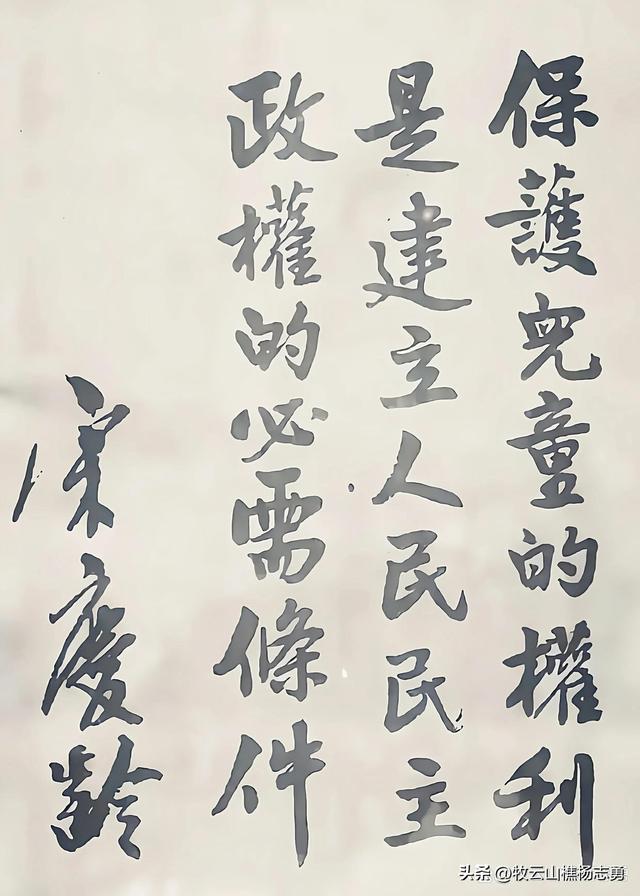 保護兒童的權利
是建立人民民主
政權的必需條件
宋慶齡
头条 @牧云山樵杨志勇